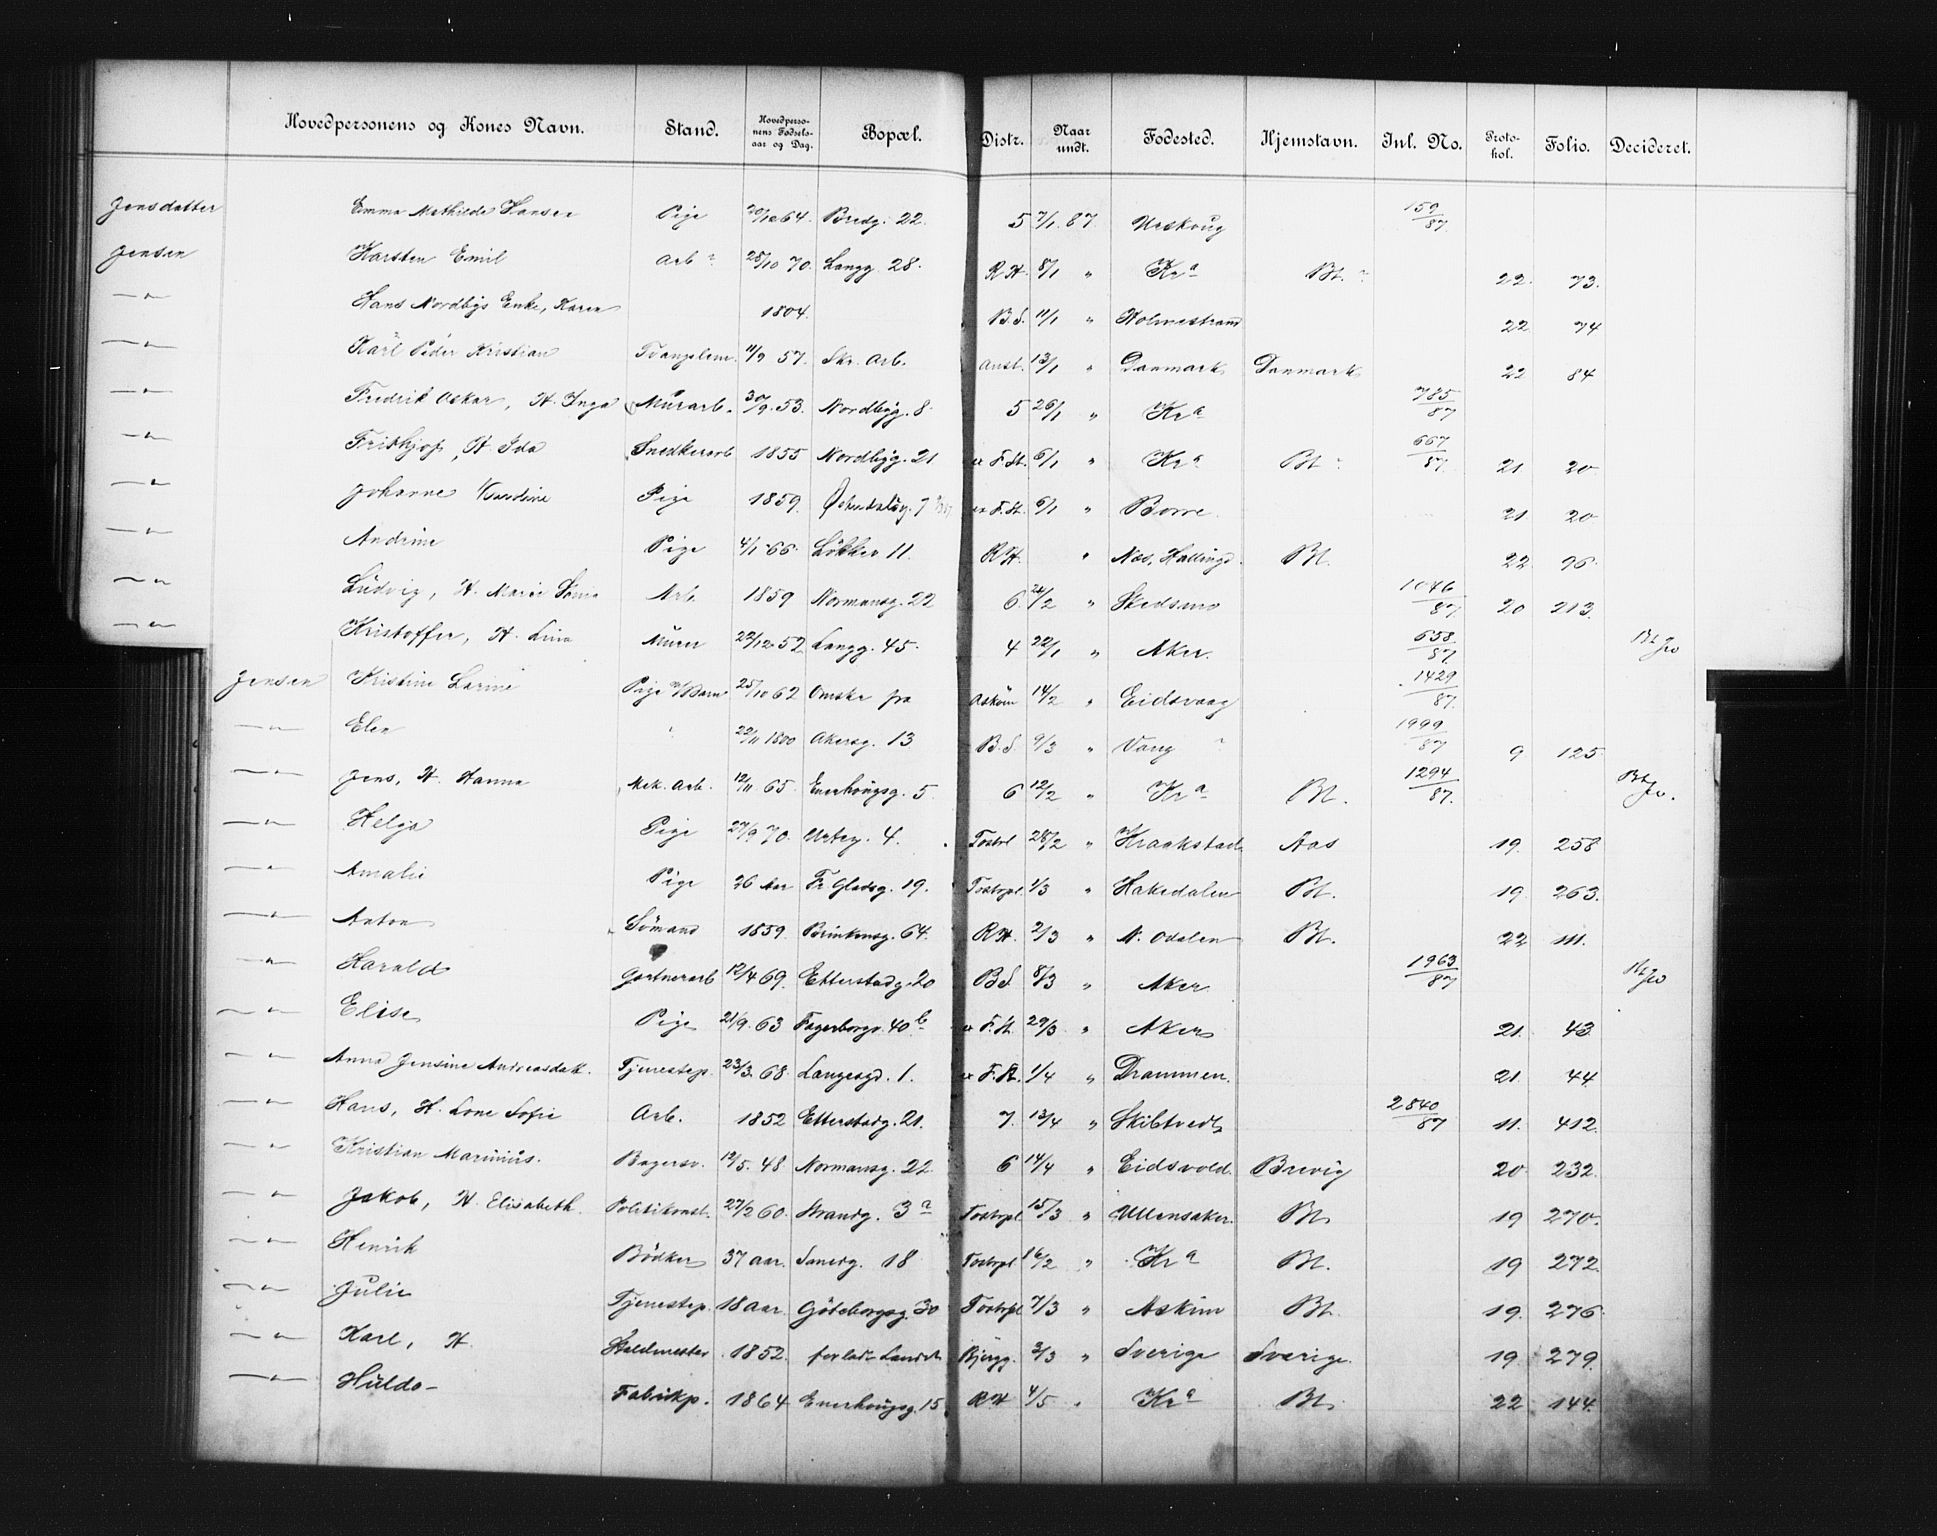 Hovedpersonens og Kones Navn. Stand. Hovedpersonens Fødselsaar og Dag. Bopæl. Distr. Naar undt. Fødested. Hjemstavn. Inl. No. Protokol. Folio. Decideret.
Jensdatter Emma Mathilde Hansen Pige 64. Bredg. 22. 5 7/1 87. Urskoug 159/87
Jensen Karsten Emil Arb 28/10 70. Langg. 28. R.H. 8/1 " Kra Bt. 22. 73.
—"— Hans Nordbys Enke, Karen 1804. B.S. 11/1 " Holmestrand 22 74
—"— Karl Peder Kristian Tvangslem. 11/9 57. Skr. Arb. Anst. 13/1 " Danmark Danmark 22 84
—"— Fredrik Oskar, H. Inga Murarb. 30/9. 53. Nordbyg. 8. 5 26/1 " Kra 785/87
—"— Frithjof, H. Ida Snedkerarb 1855 Nordbyg. 21 F.St. 6/1 " Kra Bt 667/87 21 20
—"— Johanne Pige 1859. F.St. 6/1 " Borre 21 20
—"— Andrine Pige 4/1 66. Løkken 11. R.H. " Næs, Hallingd. Bt. 22 96
—"— Ludvig, H. Marie Arb. 1859 Normansg. 22 6. 24/2 " Skedsmo 1046/87 20 213.
—"— Kristoffer, H. Lina Murer 22/12 52 Langg. 45. 4 22/1 " Aker. 658/87 Bt
Jensen Kristine Larine Pige m/Barn 25/10 62 Ønske pa Asköm 14/2 " Eidsvaag 1429/87.
—"— Elen " 22/11 1800 Akersg. 13 B.S. 9/3 " Vang 1999/87 9 125
—"— Jens, H. Hanna Mek. Arb. 12/11 65. Enerhougsg. 5. 6 12/2 " Kra Bt. 1294/87. Bt
—"— Helga Pige 27/9 70. Urteg. 4. Tostrpl 28/2 " Kraakstad Aas 19. 258
—"— Amalie Pige 26 Aar Fr. Gladsg. 19. Tostrpl 1/3 " Hakedalen Bt. 19. 263.
—"— Anton Sömand 1859. Brinkensg. 64. R.H. 2/3 " N. Odalen Bt. 22 111.
—"— Harald Gartnerarb 12/4 69. Etterstadg. 20 B.S. 8/3 " Aker 1963/87 Bt
—"— Elise Pige 21/9. 63 Fagerborgv. 40 b F.St. 29/3 " Aker 21. 43.
—"— Anna Jensine Andreasdat. Tjenestep. 23/3. 68. Langesgd. 1. F.St. 1/4 " Drammen. 21. 44
—"— Hans, H. Lone Sofie Arb. 1852 Etterstadg. 21. 7. 13/4 " Skibtvedt 2840/87 11. 412.
—"— Kristian Marinius. Bagersv. 12/5. 48. Normansg. 22 6 14/4 " Eidsvold. Brevig 20 232.
—"— Jakob, H. Elisabeth Politikonst. 27/2 60. Strandg. 3 a Tostrpl 15/3 " Ullensaker. Bt 19 270.
—"— Henrik Bödker 37 aar. 18 Tostrpl 16/2 " Kra Bt. 19 272.
—"— Julie Tjenestep. 18 aar. Göteborgsg. 30 Tostrpl 7/3 " Askim Bt. 19. 276.
—"— Karl, H. Staldmester 1852. forladt Landet 2/3 " Sverige Sverige. 19 279.
—"— Hulda Fabrikp. 1864 Enerhougsg. 15 R.H 4/5 " Kra Bt. 22 144.